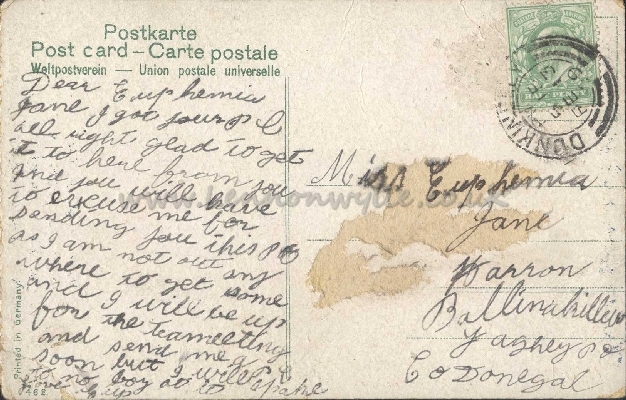 Postkarte
Post card – Carte postale
Weltpostverein — Union postale universelle
Dear Euphemia
Jane I got your p c
all right glad to get
it to hear from you
and you will have
to excuse me for
sending you this pc
as I am not out any
where to get some
and I will be up
for the teameeting
and send me a
soon but I will
to no
Miss Euphemia
Jane
Warron
Co Donegal
Printed in Germany.
www.benronwylie.co.uk